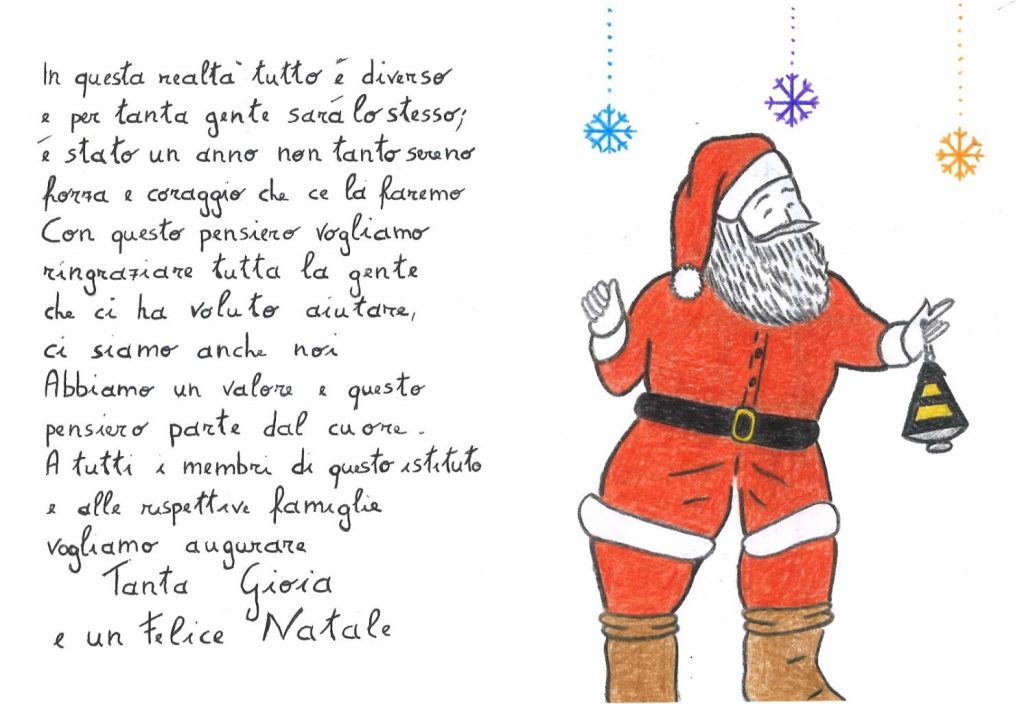 In questa realtà tutto é diverso
e per tanta gente sará lo stesso;
é stato un anno non tanto sereno
forza e coraggio che ce la faremo
Con questo pensiero vogliamo
ringraziare tutta la gente
che ci ha voluto aiutare,
ci siamo anche noi
Abbiamo un valore e questo
pensiero parte dal cuore.
A tutti i membri di questo istituto
e alle rispettive famiglie
vogliamo augurare
Tanta Gioia
e un Felice Natale